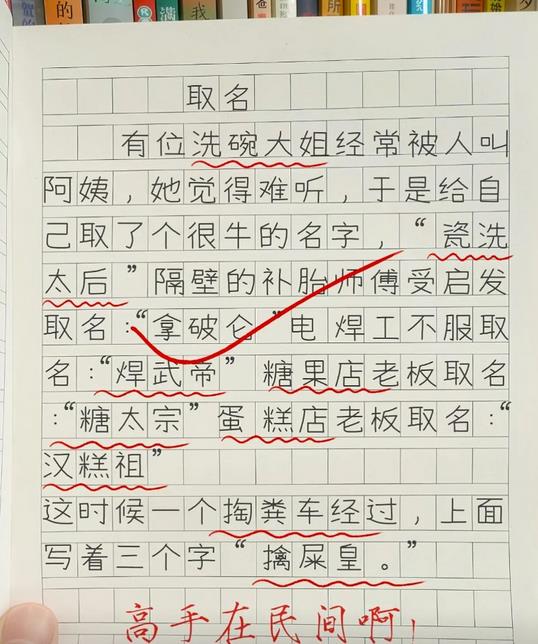 取名
有位洗碗大姐经常被人叫
阿姨，她觉得难听，于是给自
己取了个很牛的名字，“瓷洗
太后”隔壁的补胎师傅受启发
取名：“拿破仑”电焊工不服取
名：“焊武帝” 糖果店老板取名
：“糖太宗”蛋糕店老板取名：“
汉糕祖”
这时候一个掏粪车经过，上面
写着三个字“擒屎皇。”
高手在民间啊！